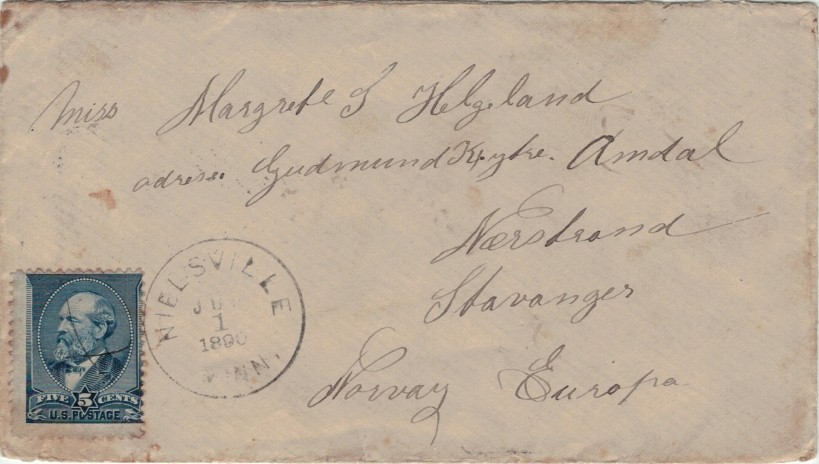 Miss Margrete S Helgeland
adrese. Gudmund Kr. ytre. Amdal
Nærstrand
Stavanger
Norvay Europa
NIELSVILLE
1
1890
MINN.
FIVE 5 CENTS
U.S. POSTAGE